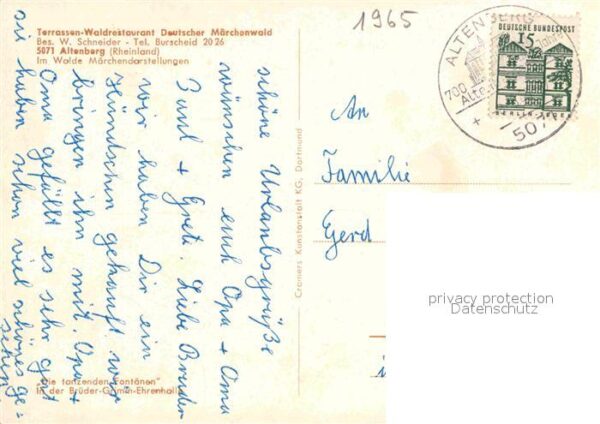 Terrassen-Waldrestaurant Deutscher Märchenwald
Bes. W. Schneider - Tel. Burscheid 2026
5071 Altenberg (Rheinland)
Im Walde Märchendarstellungen
1965
ALTENBERG
700
507
15
DEUTSCHE BUNDESPOST
BERLIN-TEGEL
schöne Urlaubsgrüße
wünschen euch Opa + Oma
Paul + Grete. Liebe
wir haben Dir ein
gekauft. wir
bringen ihn mit. Opa +
Oma gefällt es sehr gut
sie haben schon viel schönes ge=
sehen
Cramers Kunstanstalt KG, Dortmund
An
Familie
Gerd
privacy protection
Datenschutz
"Die tanzenden Fontänen"
in der Brüder-Grimm-Ehrenhalle